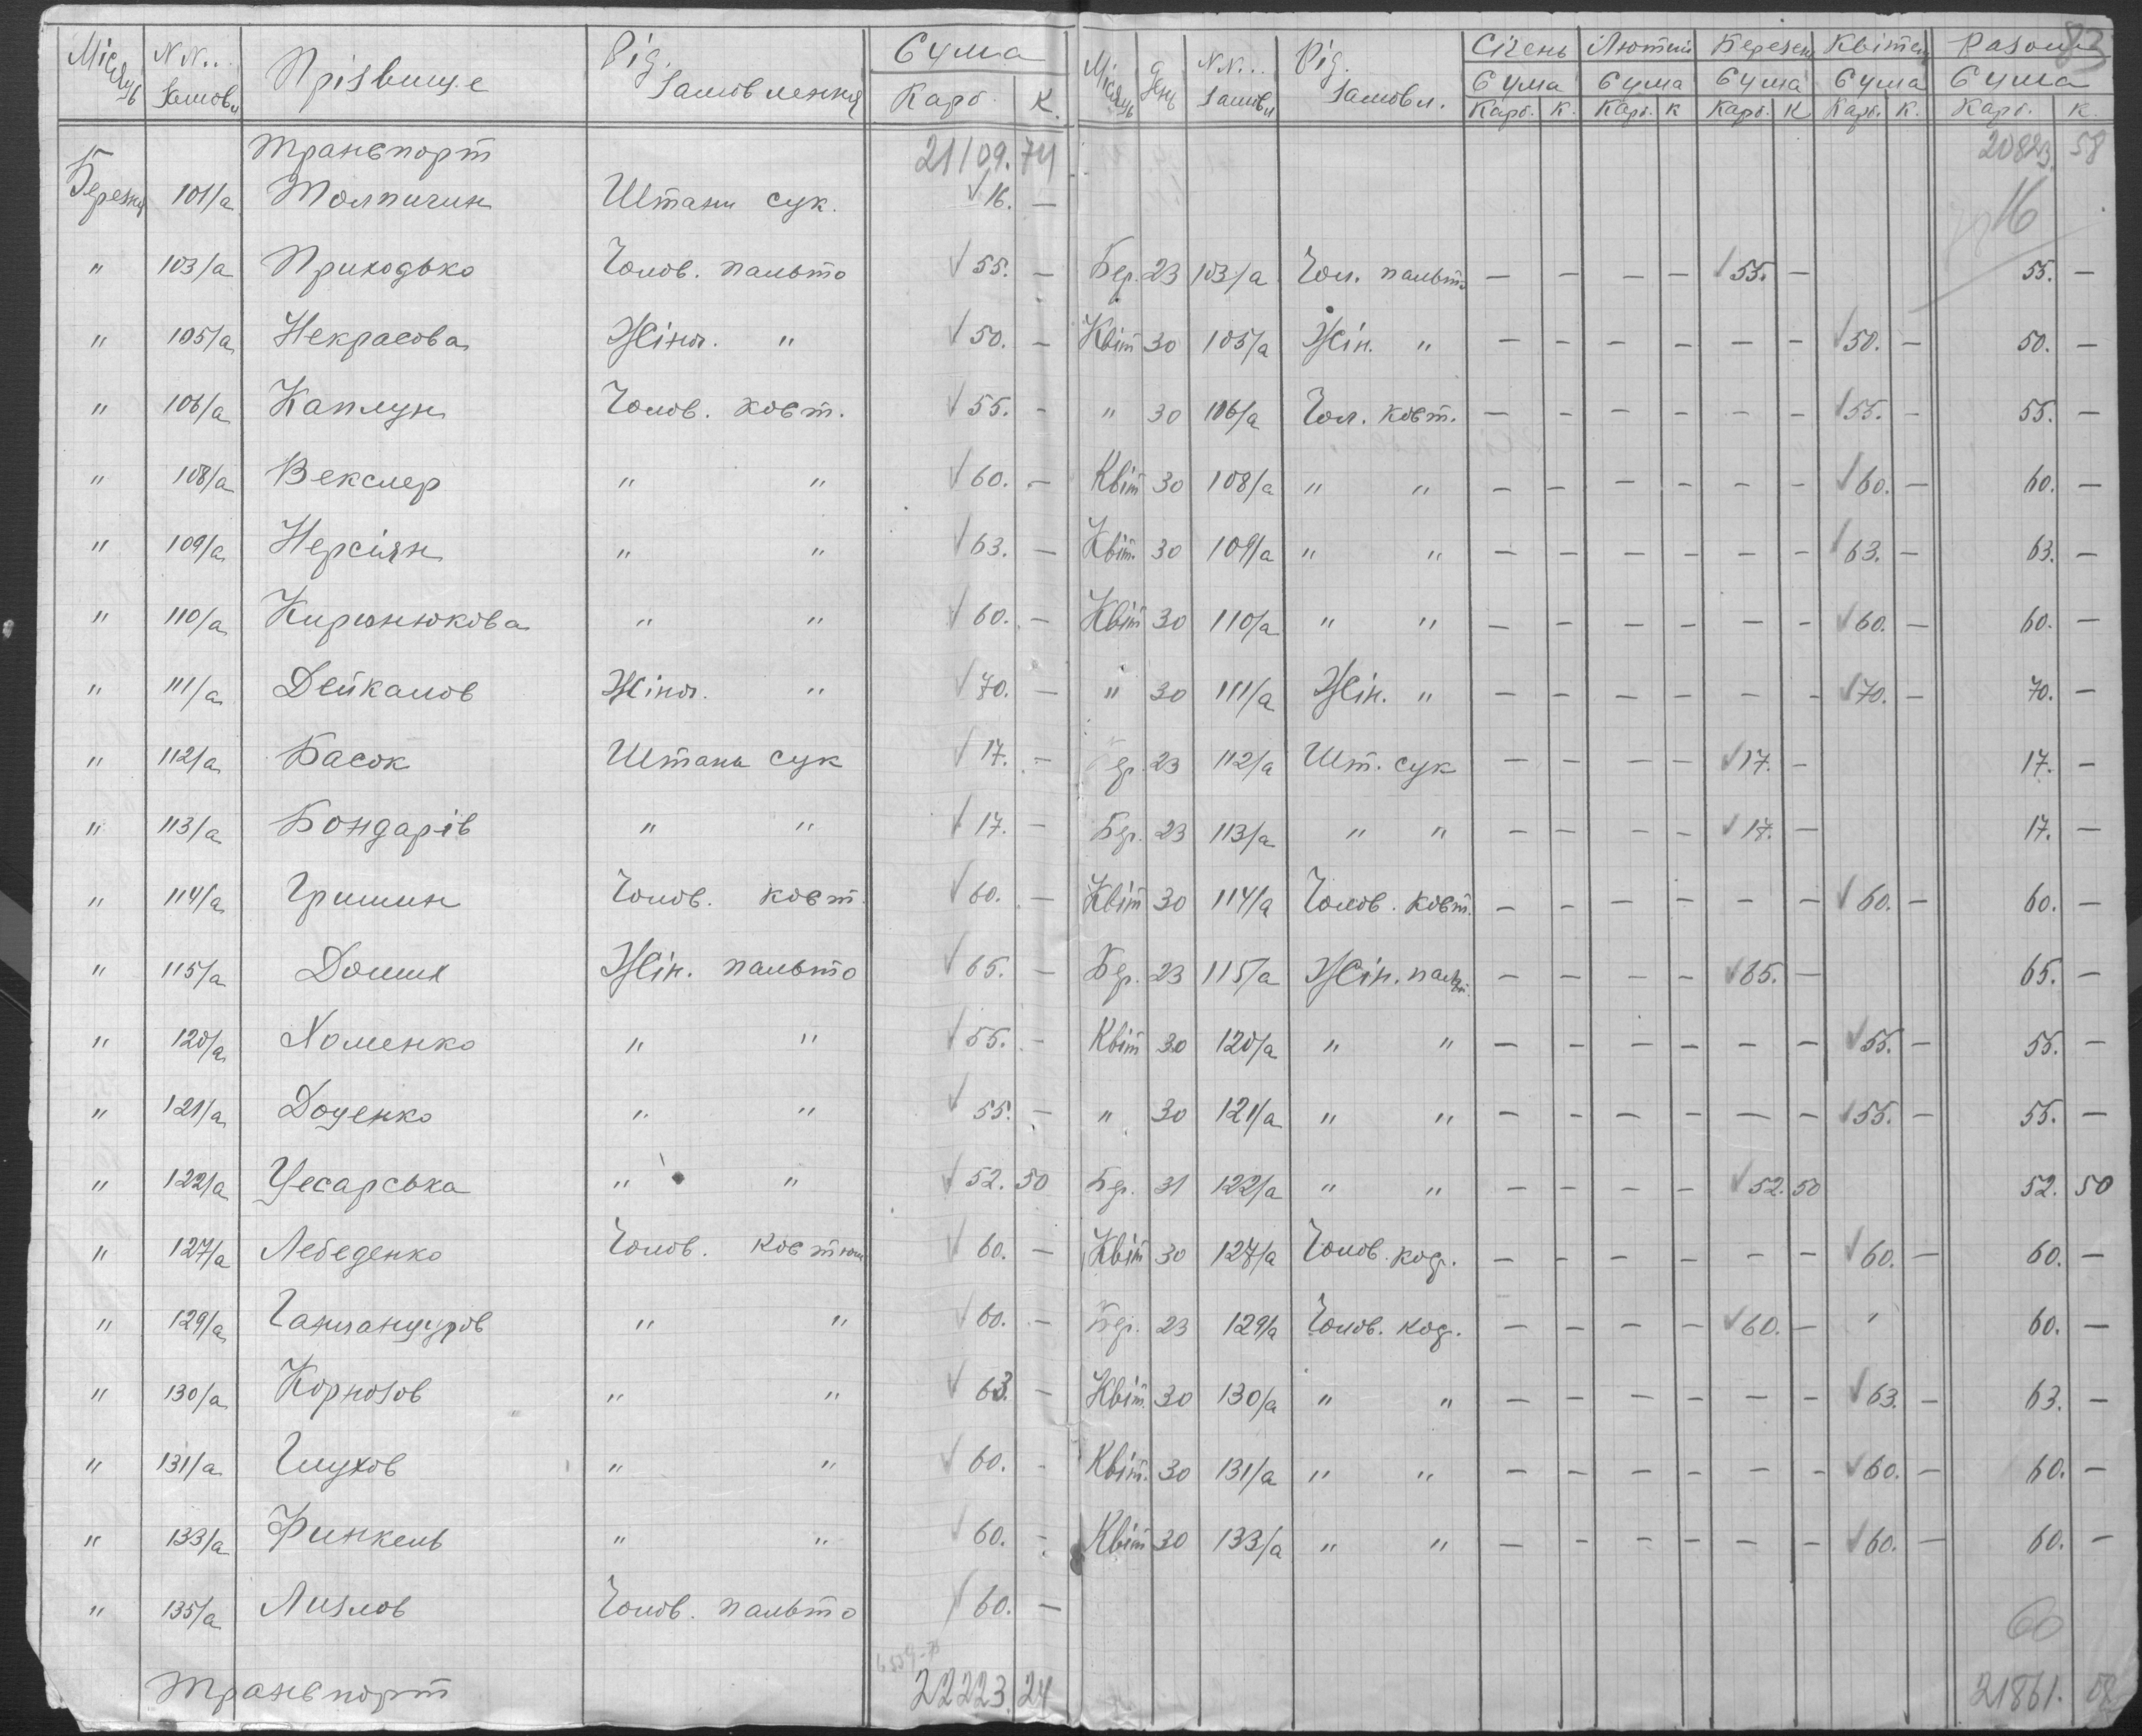 83
Місяць N N.. Замовл Прізвище Рід. Замовлення Сума Карб. К. Місяць День N N... Замовл Рід. Замовл. Січень Лютий Березень Квітень Разом
Сума Сума Сума Сума Сума
Карб. К. Карб. К Карб. К Карб. К. Карб. К.
Транспорт 21109. 74 20823. 58
Березня 101/а Толпигин Штани сук. √ 16. — 16
" 103/а Приходько Чолов. пальто √ 55. — Бер. 23 103/а Чол. пальто — — — — √ 55. — 55. —
" 105/а Некрасова Жіноч. " √ 50. — Квіт 30 105/а Жін. " — — — — — — √ 50. — 50. —
" 106/а Каплун Чолов. кост. √ 55. - " 30 106/а Чол. кост. — — — — — — √ 55. — 55. —
" 108/а Векслер " " √ 60. — Квіт 30 108/а " " — — — — — — √ 60. — 60. —
" 109/а Нерсіян " " √ 63. — Квіт. 30 109/а " " — — — — — — √ 63. — 63. —
" 110/а Кирюнюкова " " √ 60. — Квіт 30 110/а " " — — — — — — √ 60. — 60. —
" 111/а Дейкалов Жіноч. " √ 70. — " 30 111/а Жін. " — — — — — — √ 70. — 70. —
" 112/а Басок Штани сук √ 17. — Бер. 23 112/а Шт. сук — — — — √ 17. — 17. —
" 113/а Бондарів " " √ 17. — Бер. 23 113/а " " — — — — √ 17. — 17. —
" 114/а Гришин Чолов. кост. √ 60. — Квіт 30 114/а Чолов. кост. — — — — — — √ 60. — 60. —
" 115/а Жін. пальто √ 65. — Бер. 23 115/а Жін. пальт. — — — — √ 65. — 65. —
" 120/а Хоменко " " √ 55. — Квіт 30 120/а " " — — — — — — √ 55. — 55. —
" 121/а Доценко " " √ 55. — " 30 121/а " " — — — — — — √ 55. — 55. —
" 122/а Цесарська " " √ 52. 50 Бер. 31 122/а " " — — — — √ 52. 50 52. 50
" 127/а Лебеденко Чолов. костюм √ 60. — Квіт 30 127/а Чолов. кос. — — — — — — √ 60. — 60. —
" 129/а " " √ 60. — Бер. 23 129/а Чолов. кос. — — — — √ 60. — 60. —
" 130/а Корнозов " " √ 63. — Квіт. 30 130/а " " — — — — — — √ 63. — 63. —
" 131/а Глухов " " √ 60. - Квіт. 30 131/а " " — — — — — — √ 60. — 60. —
" 133/а Финкель " " √ 60. - Квіт 30 133/а " " — — — — — — √ 60. — 60. —
" 135/а Лизлов Чолов. пальто √ 60. — 60
Транспорт 22223. 24 21861. 08